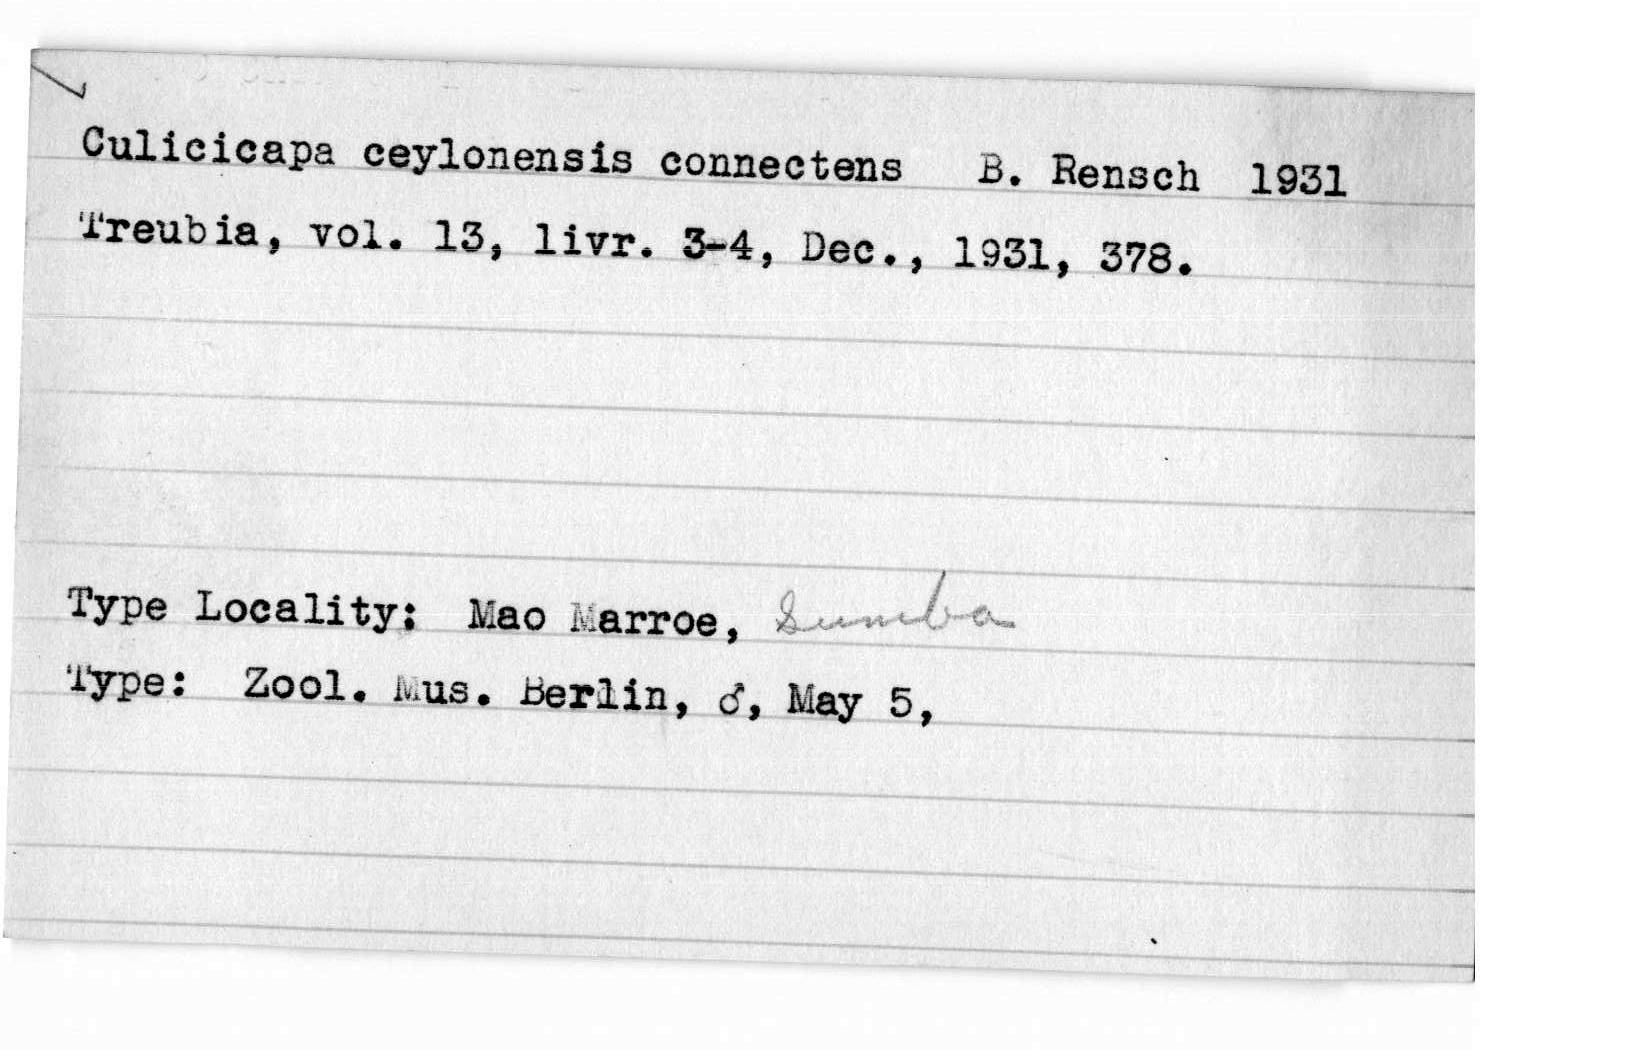 Culicicapa ceylonensis connectens B. Rensch 1931
Treubia, vol. 13, livr. 3-4, Dec., 1931, 378.
Type Locality: Mao Marroe, Sumba
Type: Zool. Mus. Berlin, ♂, May 5,